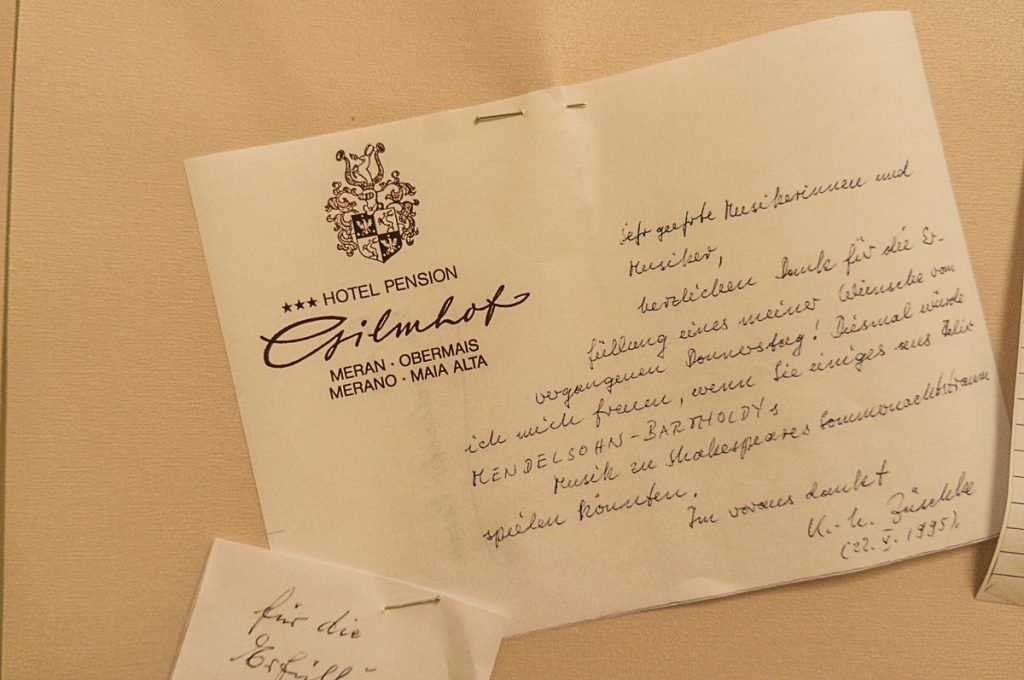 ★★★ HOTEL PENSION
Gilmhof
MERAN · OBERMAIS
MERANO · MAIA ALTA
Sehr geehrte Musikerinnen und
Musiker,
herzlichen Dank für die Er-
füllung eines meiner Wünsche vom
vergangenen Donnerstag! Diesmal würde
ich mich freuen, wenn Sie einiges aus Felix
MENDELSOHN-BARTHOLDYs
Musik zu Shakespeares Sommernachtstraum
spielen könnten.
Im voraus dankt
K.-H. 
(22. V. 1995).
für die